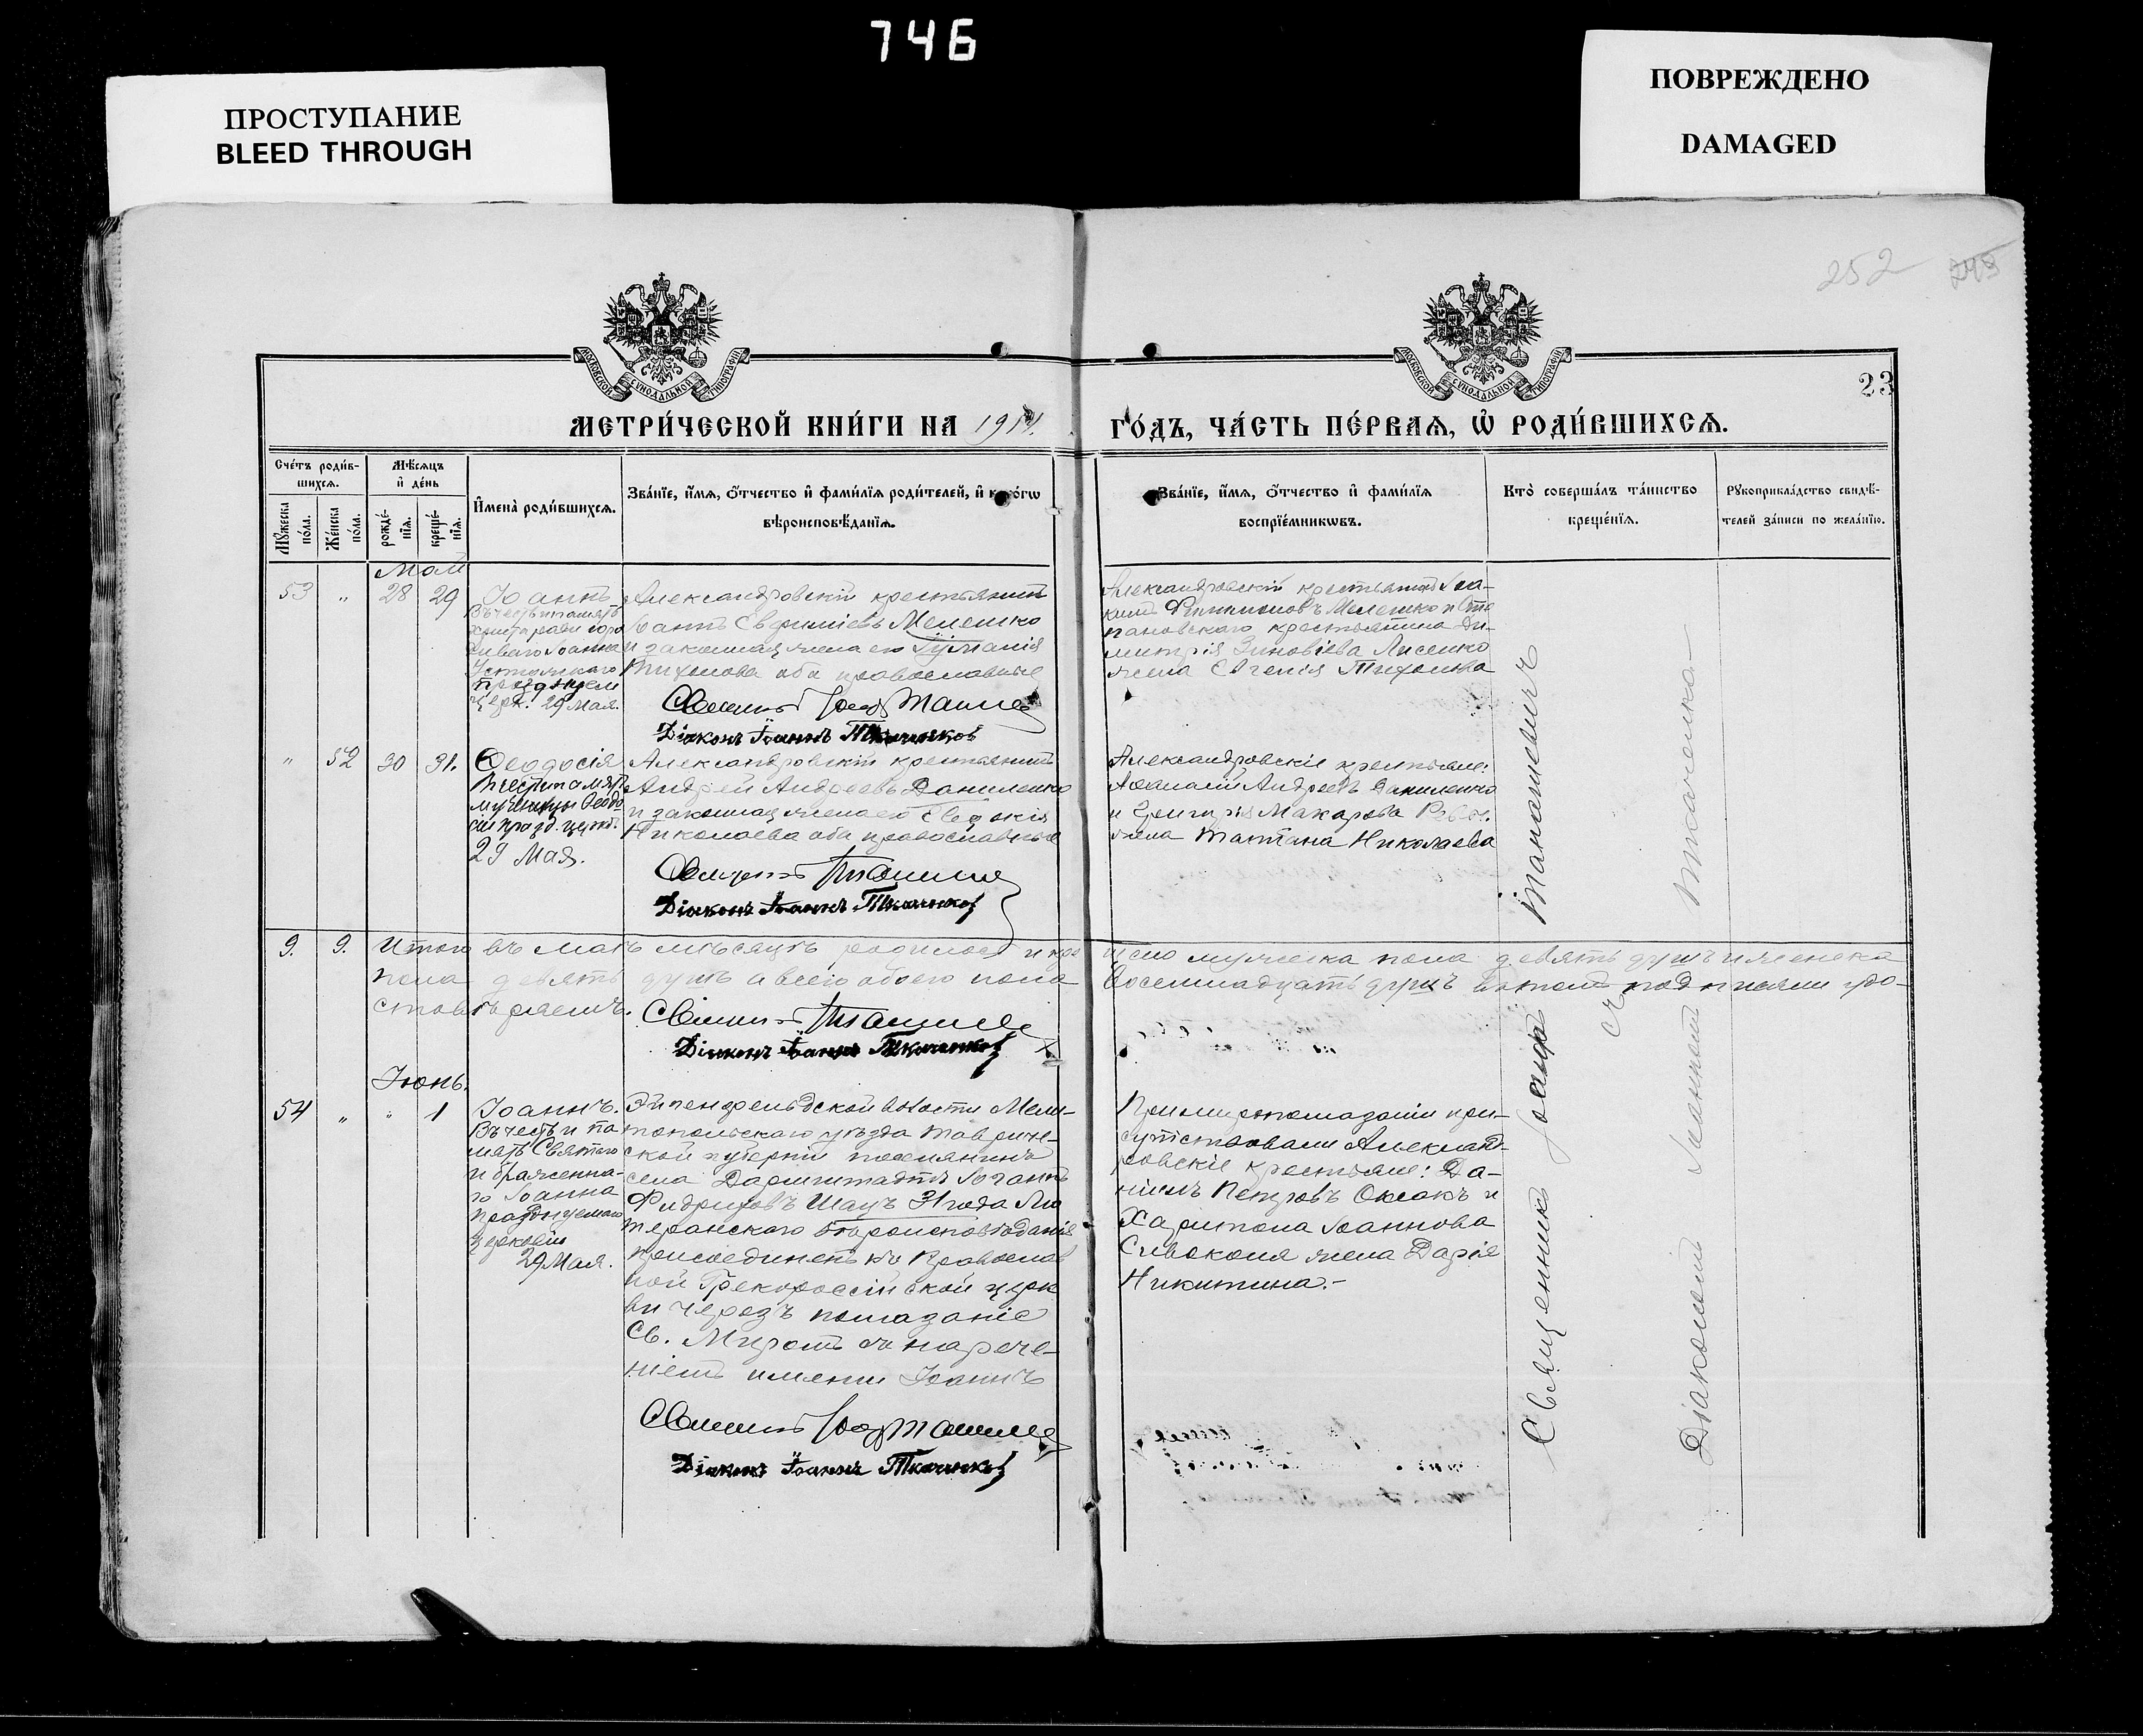 746
ПРОСТУПАНИЕ
BLEED THROUGH
ПОВРЕЖДЕНО
DAMAGED
252
23
МОСКОВСКОЙ СѴНОДАЛЬНОЙ ТИПОГРАФІИ
МОСКОВСКОЙ СѴНОДАЛЬНОЙ ТИПОГРАФІИ
МЕТРИ́ЧЕСКОЙ КНИ́ГИ НА 1914 ГО́ДЪ, ЧА́СТЬ ПЕ́РВАѦ, Ѡ҆ РОДИ́ВШИХСѦ.
Сче́тъ роди́в-
шихсѧ.
Мꙋ́жеска по́ла.
Же́нска по́ла.
Мѣ́сѧцъ
и҆ де́нь
рожде́-
нїѧ.
креще́-
нїѧ.
И҆мена̀ роди́вшихсѧ.
Зва́нїе, и҆́мѧ, ѻ҆́тчество и҆ фами́лїѧ роди́телей, и҆ како́гѡ
вѣроисповѣ́данїѧ.
Зва́нїе, и҆́мѧ, ѻ҆́тчество и҆ фами́лїѧ
воспрїе́мникѡвъ.
Кто̀ соверша́лъ та́инство
креще́нїѧ.
Рꙋкоприкла́дство свидѣ́-
телей за́писи по жела́нїю.
Май
53 " 28 29
Іоаннъ
Въ честь и память
Христа ради юро
диваго Іоанна
Устюжскаго
празднуем
церк. 29 Мая.
Александровскій крестьянинъ
Іоаннъ Евфиміевъ Мелешко
и законная жена его
Тихонова оба православные
Священникъ Іоаф Танаше
Діаконъ Іоаннъ Ткаченков
Александровскій крестьянинъ Іоа-
кимъ Мелешко и Сте
пановскаго крестьянина Ди-
митрія Зиновіева Лисенко
жена Евгенія Тихонова
" 52 30 31.
Ѳеодосія
В честь и памят
мученицы Ѳеодо
сіи празд. церк.
29 Мая.
Александровскій крестьянинъ
Андрей Андреевъ Даниленко
и законная жена его Евдокія
Николаева оба православные
Священникъ Танаше
Діаконъ Іоаннъ Ткаченков
Александровскіе крестьяне:
Аѳанасій Андреевъ Даниленко
и Григорія Макарова
жена Татіана Николаева
9. 9. Итого въ маѣ мѣсяцѣ родилось и кре щено мужеска пола девять душъ и женска
пола девять душъ а всего обоего пола восемнадцать душъ въ томъ подписями удо-
стовѣряемъ.
Священникъ Танаше
Діаконъ Іоаннъ Ткаченков
Іюнь.
54 " " 1
Іоаннъ.
Въ честь и па
мять Святаго
и блаженна-
го Іоанна
празднуемаго
церковію
29 Мая.
Эйгенфельдской волости Мели-
топольскаго уѣзда Тавриче-
ской губерніи поселянинъ
села Дармштадтъ Іоганнъ
Фидриховъ Шацъ 31 года Лю
теранскаго вѣроисповѣданія
присоединенъ къ Православ
ной Грекороссійской церк
ви черезъ помазаніе
Св. Миромъ съ нарече-
ніемъ имени Іоаннъ
Священникъ Іоаф Танаше
Діаконъ Іоаннъ Ткаченков
При миропомазаніи при-
сутствовали Александ-
ровскіе крестьяне: Да-
ніилъ Петровъ Оксакъ и
Харитона Іоаннова
Сивоконя жена Дарія
Никитина.-
Священникъ Іоаф Танашевичъ
съ
Діакономъ Іоанномъ Ткаченко